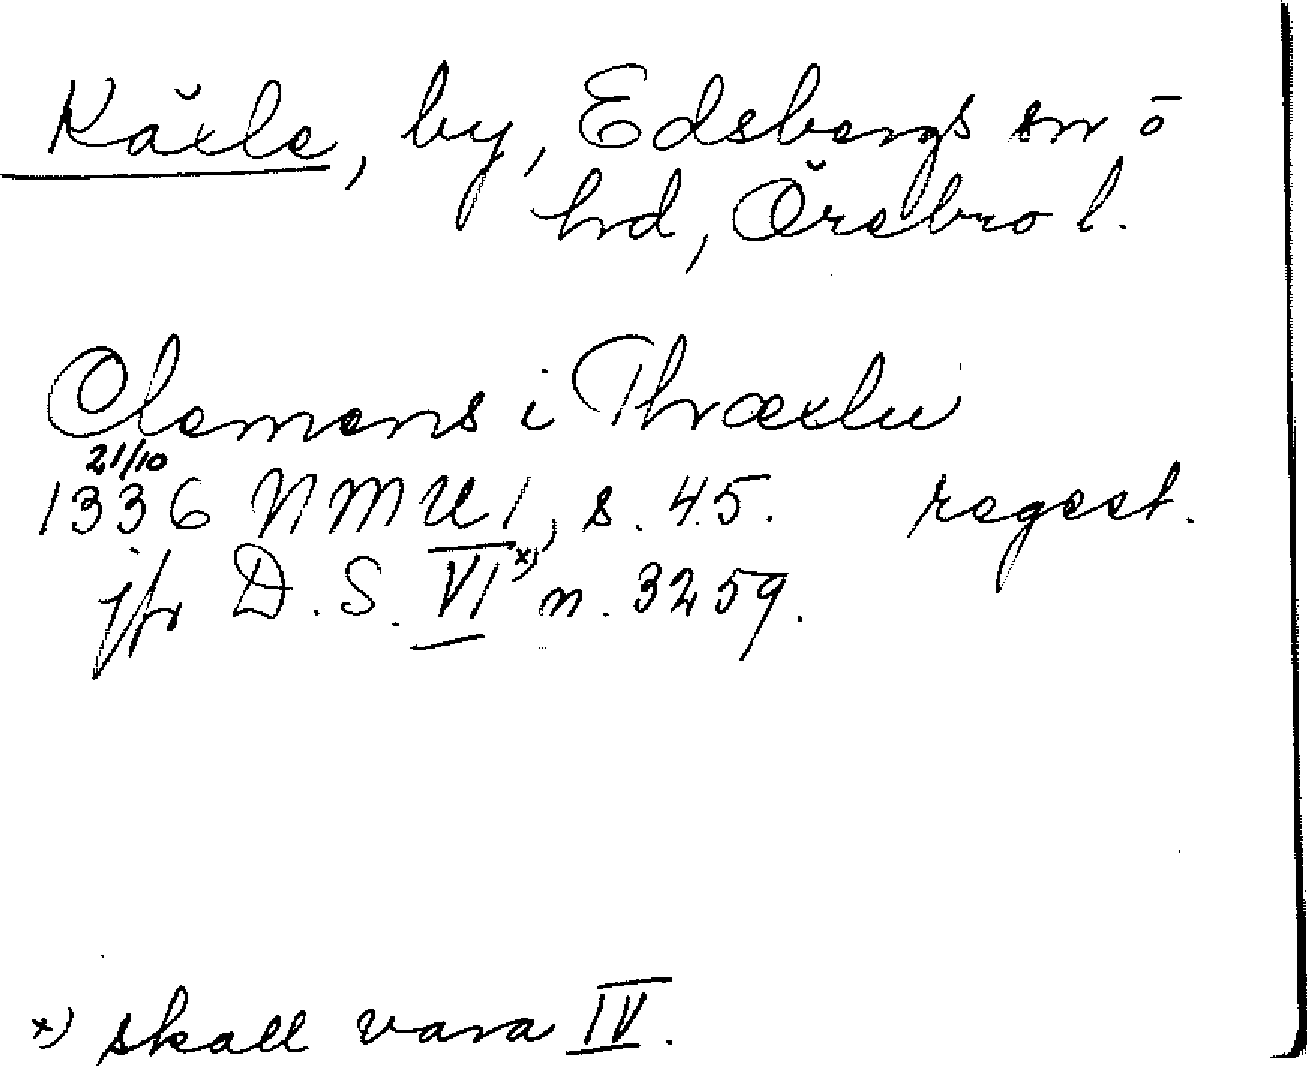 Käxle, by, Edsbergs sn o
hd, Örebro l.
Clemens i Thræxlu
21/10
1336 NMU 1, s. 45. regest.
jfr D. S. VI x) n. 3259.
x) skall vara IV.